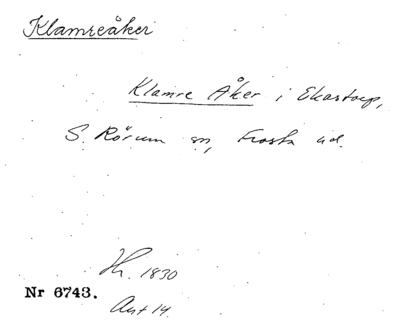 Klamreåker
Klamre Åker i Ekastorp,
S. Rörum sn, Frosta hd.
Hr. 1830
Nr 6743.
Avt 14.